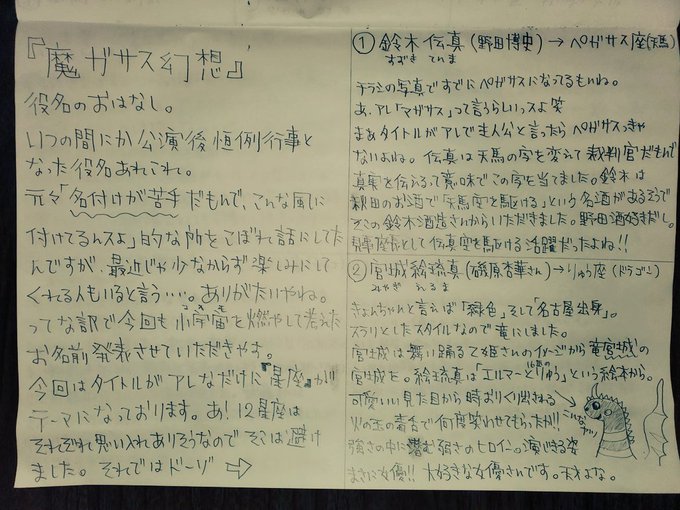 『魔ガサス幻想』
役名のおはなし。
いつの間にか公演後恒例行事と
なった役名あれこれ。
元々「名付けが苦手だもんで、こんな風に
付けてるんスよ」的な所をこぼれ話にしてた
んですが、最近じゃ少なからず楽しみにして
くれる人もいると言う…。ありがたいやね。
ってな訳で今回も小宇宙を燃やして考えた
コスモ
お名前発表させていただきやす。
今回はタイトルがアレなだけに『星座』が
テーマになっております。あ!12星座は
それぞれ思い入れありそうなのでそこは避け
ました。それではドーゾ ⇨
① 鈴木伝真(野田博史)→ペガサス座(天馬)
すずき てんま
チラシの写真ですでにペガサスになってるもいね。
あ、アレ「マガサス」って言うらしいっスよ笑
まぁタイトルがアレで主人公と言ったらペガサスっきゃ
ないよね。伝真は天馬の字を変えて裁判官だもんで
真実を伝えるって意味でこの字を当てました。鈴木は
秋田のお酒で「天馬空を駆ける」という名酒があるそうで
そこの鈴木酒造さんからいただきました。野田酒好きだし。
見事座長として伝真空を駆ける活躍だったよね!!
② 宮城絵瑠真(磯原杏華さん)→りゅう座(ドラゴン)
みやぎ えるま
きょんちゃんと言えば「緑色」そして「名古屋出身」。
スラリとしたスタイルなので竜にしました。
宮城は舞い踊る乙姫さんのイメージから竜宮城の
宮城だ。絵瑠真は「エルマーとりゅう」という絵本から。
可愛いい見た目から時おりくり出される
火の玉の毒舌で何度笑わせてもらったか!!
強さの中に潜む弱さのヒロイン。演じきる姿
まさに女優!!大好きな女優さんです。天才よな。
こんなヤツ